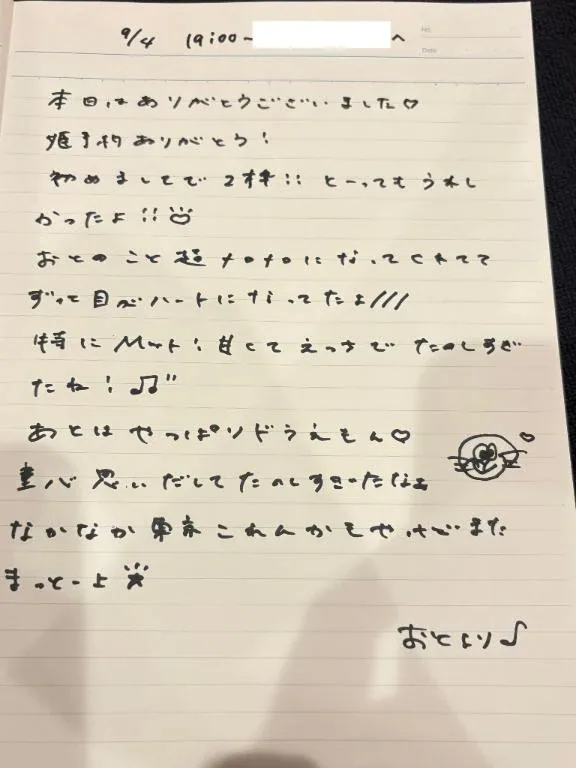 9/4 19:00~ へ
No.
Date
本日はありがとうございました♡
姫予約ありがとう!
初めましてで2枠!! とーってもうれし
かったよ!!
おとのこと超メロメロになってくれてて
ずっと目がハートになってたよ///
特にMット!甘くてえっちでたのしすぎ
たね!♫"
あとはやっぱりドラえもん♡
童心思いだしてたのしすぎたなぁ
なかなか東京これんかもやけどまた
まっとーよ
おとより♪